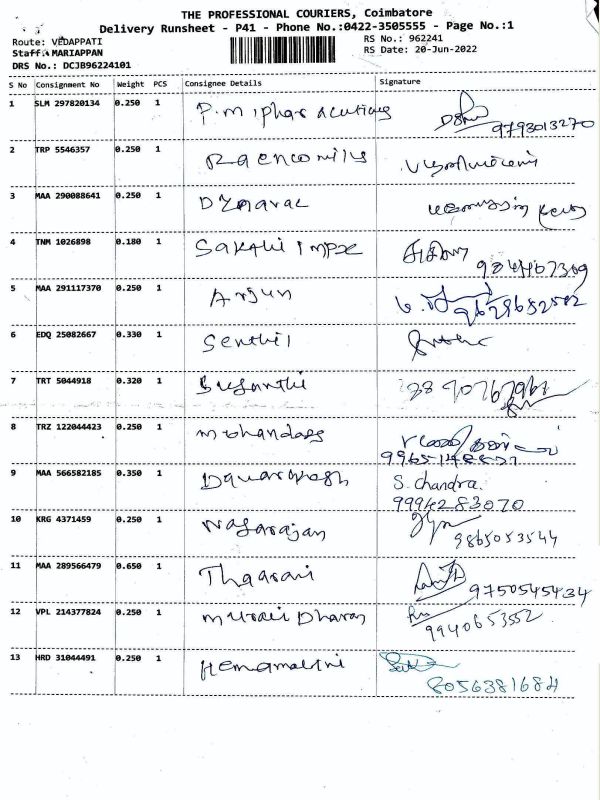 THE PROFESSIONAL COURIERS, Coimbatore
Delivery Runsheet - P41 - Phone No.:0422-3505555 - Page No.:1
Route: VEDAPPATI
RS No.: 962241
Staff: MARIAPPAN
RS Date: 20-Jun-2022
DRS No.: DCJB96224101
S No Consignment No Weight PCS Consignee Details Signature
1 SLM 297820134 0.250 1 P.M iphar acuticas
9793013270
2 TRP 5546357 0.250 1
3 MAA 290088641 0.250 1
4 TNM 1026898 0.180 1 Sakthi Impx
9844407309
5 MAA 291117370 0.250 1 Arjun
9629652502
6 EDQ 25082667 0.330 1 Senthil
7 TRT 5044918 0.320 1 Susanthi
8 TRZ 122044423 0.250 1 Mohandass
9 MAA 566582185 0.350 1 S. Chandra.
9994283070
10 KRG 4371459 0.250 1 Nagarajan
9865053544
11 MAA 289566479 0.650 1 Thaarani
9750545434
12 VPL 214377824 0.250 1 Murali Dharan
9940653552
13 HRD 31044491 0.250 1 Hemamalini
8056381684